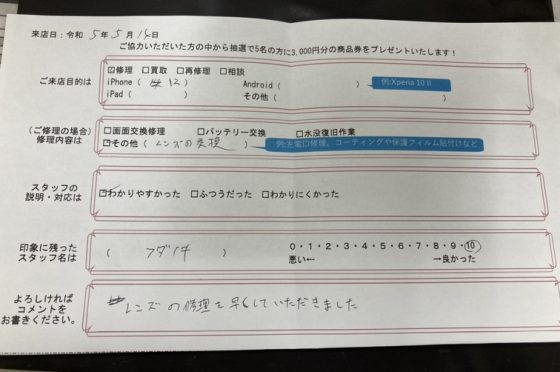 来店日：令和 5年 5月 14日
ご協力いただいた方の中から抽選で5名の方に3,000円分の商品券をプレゼントいたします！
ご来店目的は
☑修理 □買取 □再修理 □相談
iPhone（ 12 ） Android（ ） 例:Xperia 10 II
iPad（ ） その他（ ）
（ご修理の場合）
修理内容は
□画面交換修理 □バッテリー交換 □水没復旧作業
☑その他（レンズの交換） 例:充電口修理、コーティングや保護フィルム貼付けなど
スタッフの
説明・対応は
☑わかりやすかった □ふつうだった □わかりにくかった
印象に残った
スタッフ名は
（ ） 0・1・2・3・4・5・6・7・8・9・⑩
悪い← →良かった
よろしければ
コメントを
お書きください。
レンズの修理を早くしていただきました